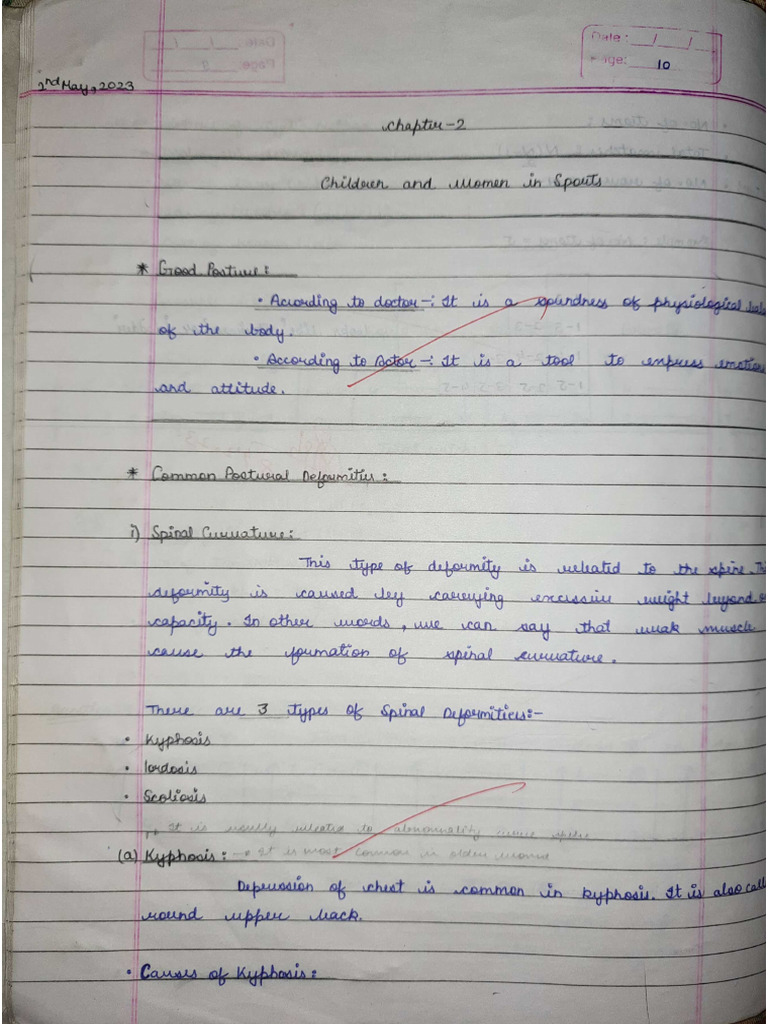 Date: __/__/__
Page: 10
2nd May, 2023
Chapter-2
Children and Women in Sports
* Good Posture:
• According to doctor -: It is a soundness of physiological
of the body.
• According to Actor -: It is a tool to express emotions
and attitude.
* Common Postural Deformities:
i) Spinal Curvature:
This type of deformity is related to the spine. This
deformity is caused by carrying excessive weight beyond
capacity. In other words, we can say that weak muscle
cause the formation of spinal curvature.
There are 3 types of Spinal Deformities:-
• Kyphosis
• lordosis
• Scoliosis
→ It is usually related to abnormality curve
(a) Kyphosis: → It is most common in older
Depression of chest is common in kyphosis. It is also
round upper back.
• Causes of Kyphosis: